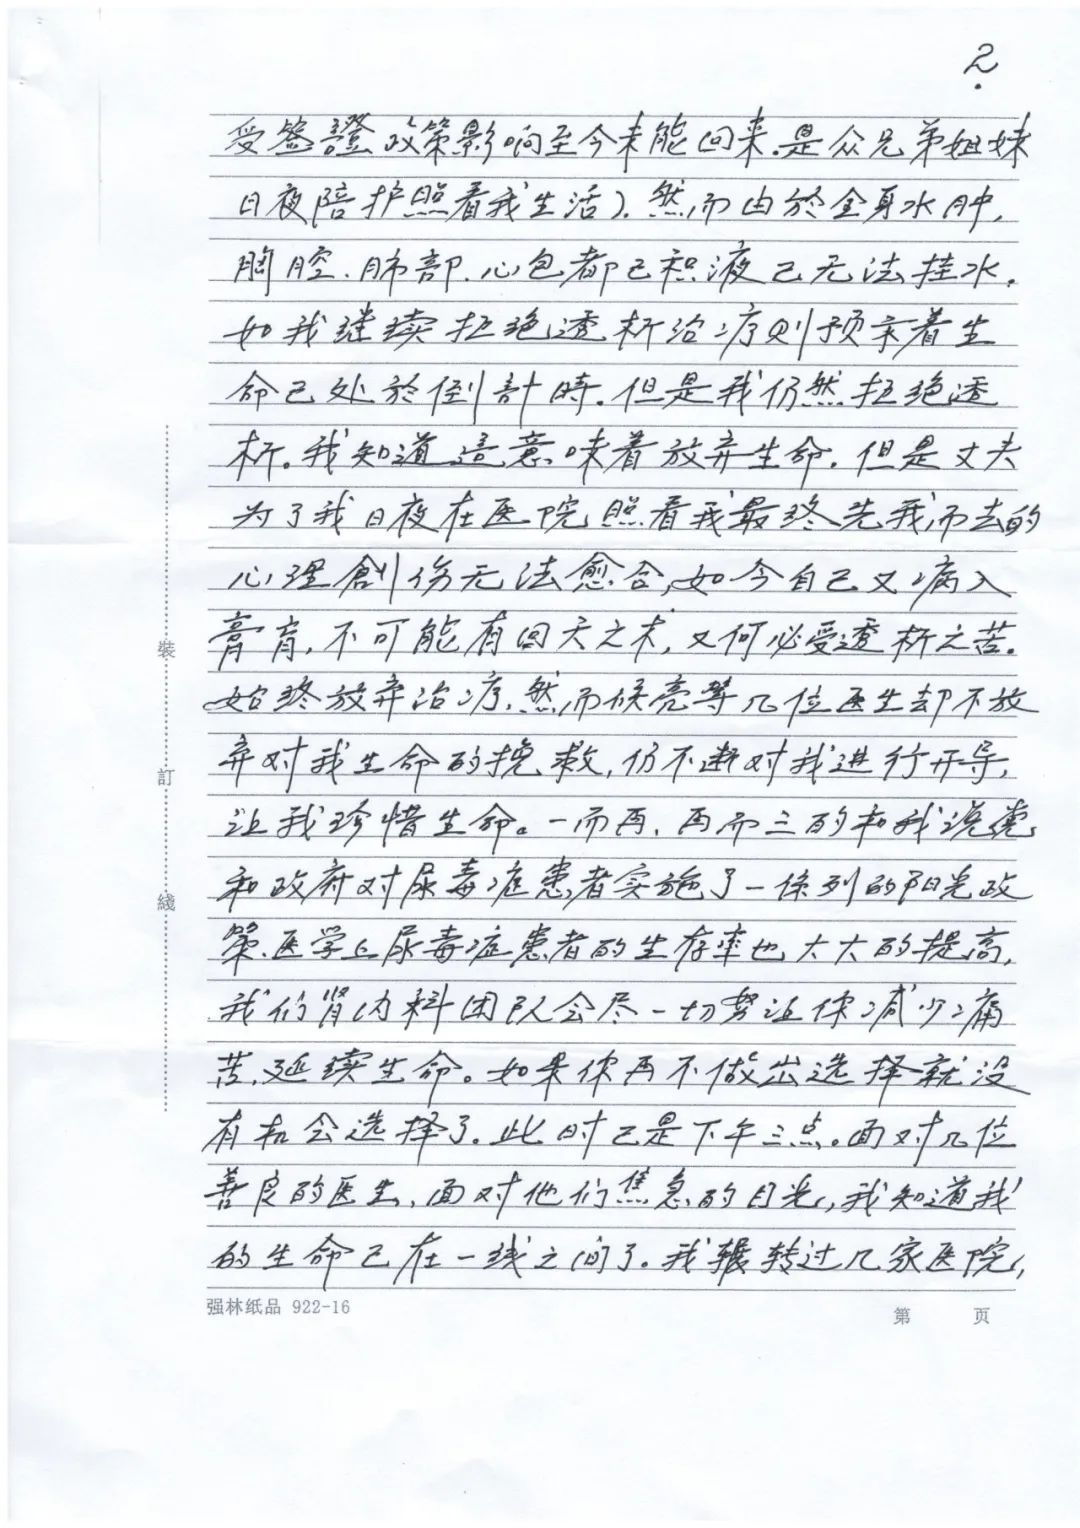 2.
受签證政策影响至今未能回来.是众兄弟姐妹
日夜陪护照看我生活).然而由於全身水肿,
胸腔.肺部.心包都已积液已无法挂水.
如我继续拒绝透析治疗则预示着生
命已处於倒計時.但是我仍然拒绝透
析。我知道這意味着放弃生命.但是丈夫
为了我日夜在医院照看我最终先我而去的
心理創伤无法愈合,如今自己又病入
膏肓,不可能有回天之术,又何必受透析之苦.
始终放弃治疗,然而候亮等几位医生却不放
弃对我生命的挽救,仍不断对我进行开导,
让我珍惜生命。一而再,再而三的和我说党
和政府对尿毒症患者实施了一條列的阳光政
策.医学上尿毒症患者的生存率也大大的提高,
我们肾内科团队会尽一切努让你减少痛
苦,延续生命。如果你再不做出选择就没
有机会选择了.此时已是下午三点。面对几位
善良的医生,面对他们焦急的目光,我知道我
的生命已在一线之间了.我辗转过几家医院,
裝
訂
綫
强林纸品 922-16
第 页